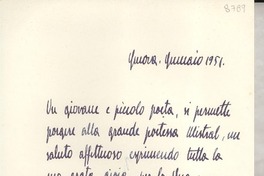 8789
Genova. Gennaio 1951.
Un giovane e piccolo poeta, si permette
porgere alla grande poetessa Mistral, un
saluto affettuoso esprimendo tutta la
sua grata gioia per la Sua